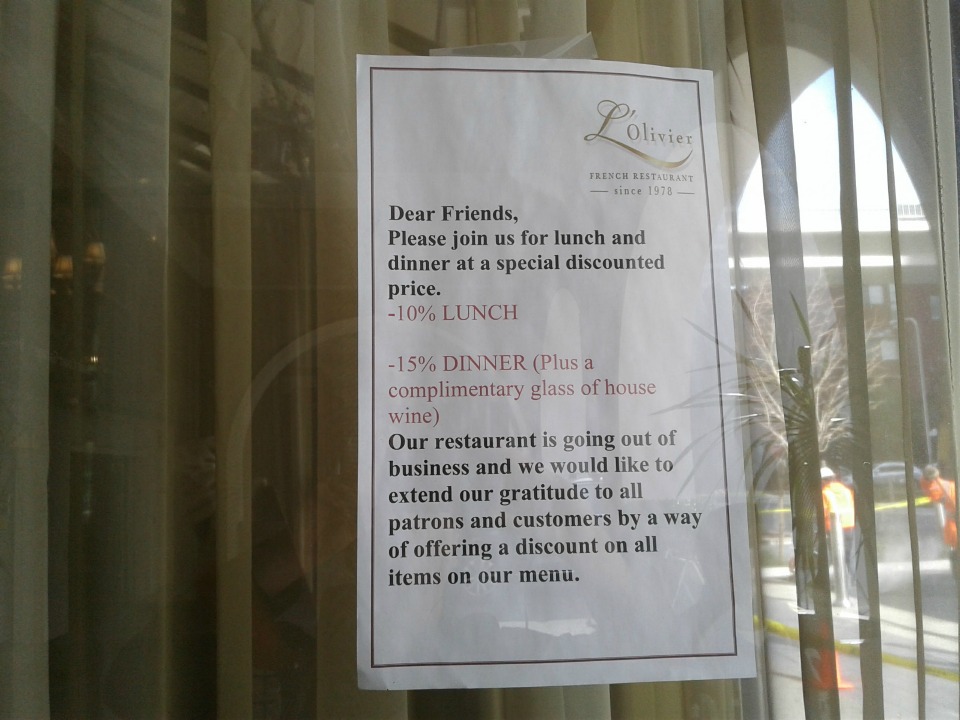 L'Olivier
FRENCH RESTAURANT
since 1978
Dear Friends,
Please join us for lunch and
dinner at a special discounted
price.
-10% LUNCH
-15% DINNER (Plus a
complimentary glass of house
wine)
Our restaurant is going out of
business and we would like to
extend our gratitude to all
patrons and customers by a way
of offering a discount on all
items on our menu.